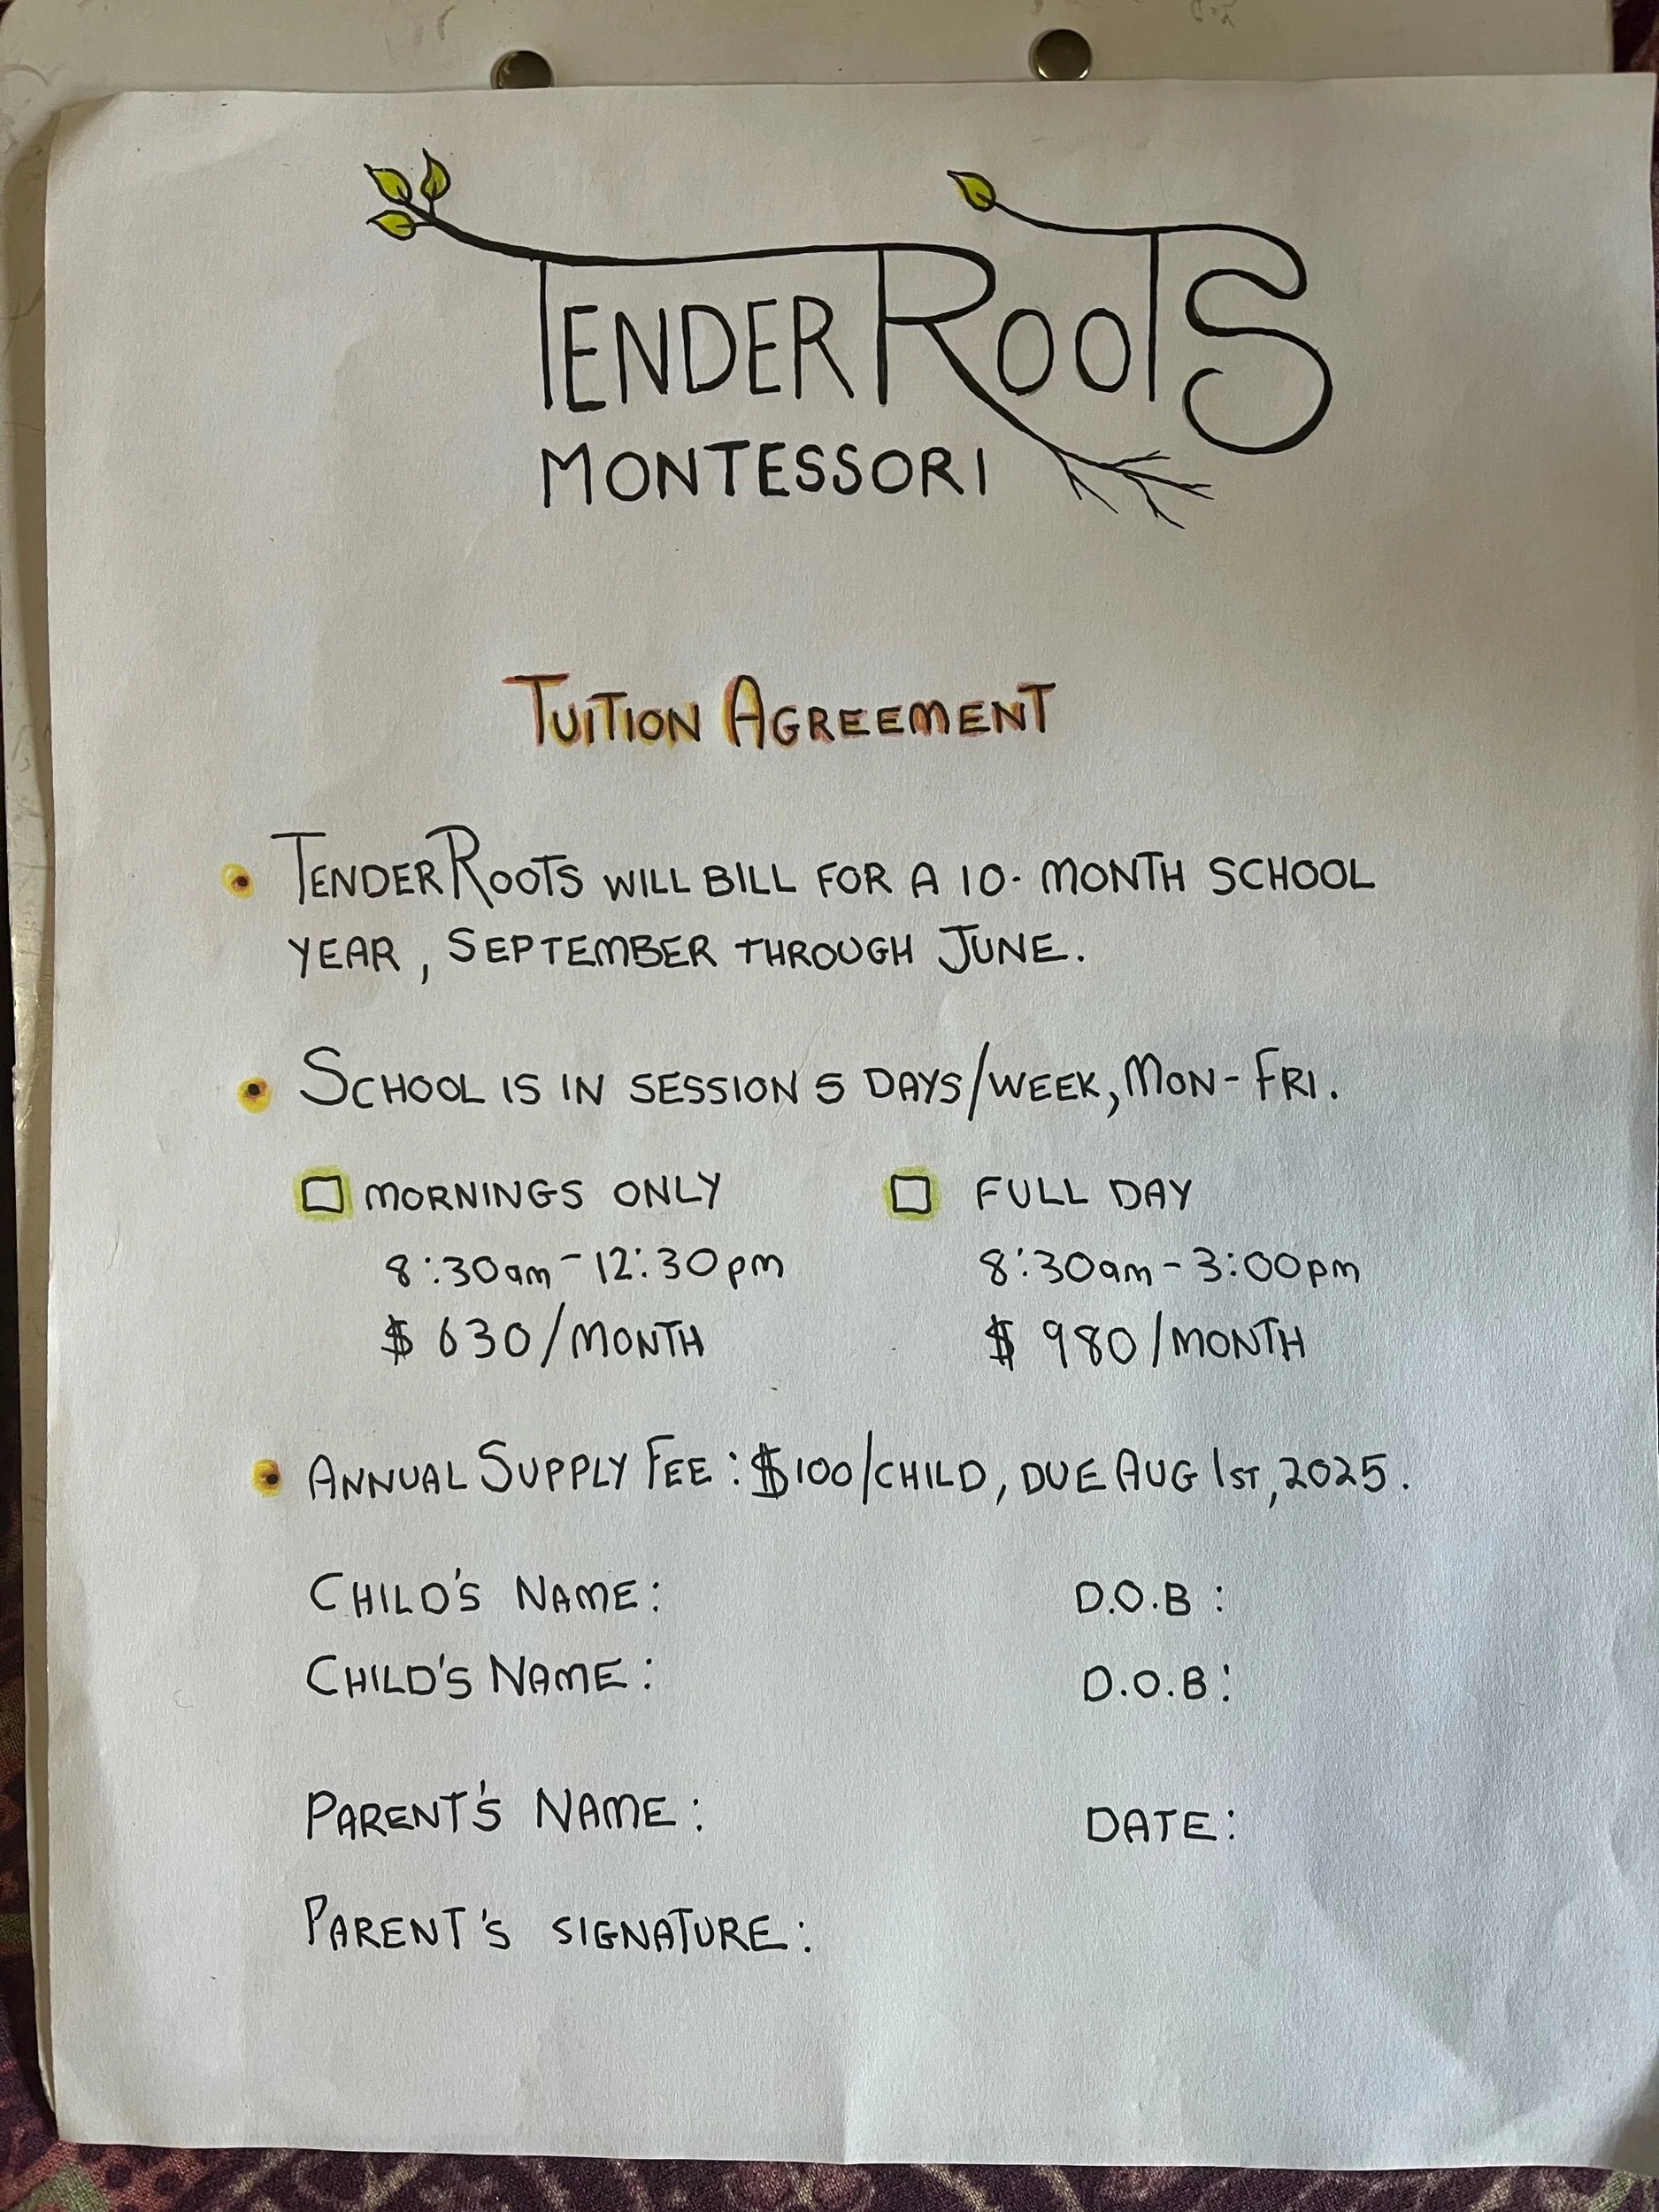 TENDER ROOTS
MONTESSORI
TUITION AGREEMENT
• TENDER ROOTS WILL BILL FOR A 10- MONTH SCHOOL
YEAR, SEPTEMBER THROUGH JUNE.
• SCHOOL IS IN SESSION 5 DAYS/WEEK, MON-FRI.
☐ MORNINGS ONLY ☐ FULL DAY
8:30am-12:30pm 8:30am-3:00pm
$ 630/MONTH $ 980/MONTH
• ANNUAL SUPPLY FEE: $100/CHILD, DUE AUG 1ST, 2025.
CHILD'S NAME: D.O.B:
CHILD'S NAME: D.O.B:
PARENT'S NAME: DATE:
PARENT'S SIGNATURE: